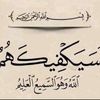 بسم الله الرحمن الرحيم
فسيكفيكهم
الله وهو السميع العليم